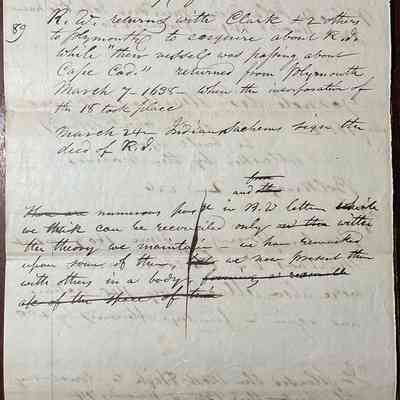 89
R. W. returned with Clark & 2 others
to Plymouth, to enquire about R. I.
while "their vessell was passing about
Cape Cod." returned from Plymouth
March 7 - 1638 - when the incorporation of
the 18 took place
March 24 - Indian Sachems sign the
deed of R. I.
from
and the
There are numerous in R. W letter while
we think can be reconciled only with
the theory we maintain we have remarked
upon some of them, we now present them
with others in a body, forming a reasonable
of the space of time